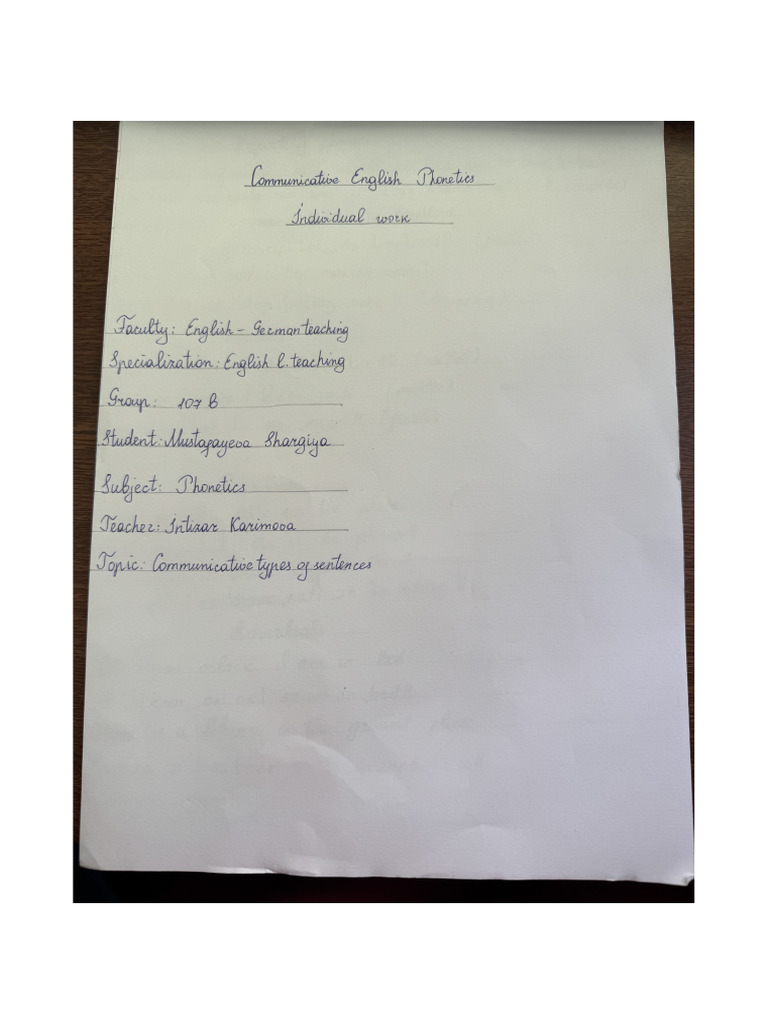 Communicative English Phonetics
İndividual work
Faculty: English - German teaching
Specialization: English l. teaching
Group: 107 B
Student: Mustafayeva Shargiya
Subject: Phonetics
Teacher: İntizar Karimova
Topic: Communicative types of sentences